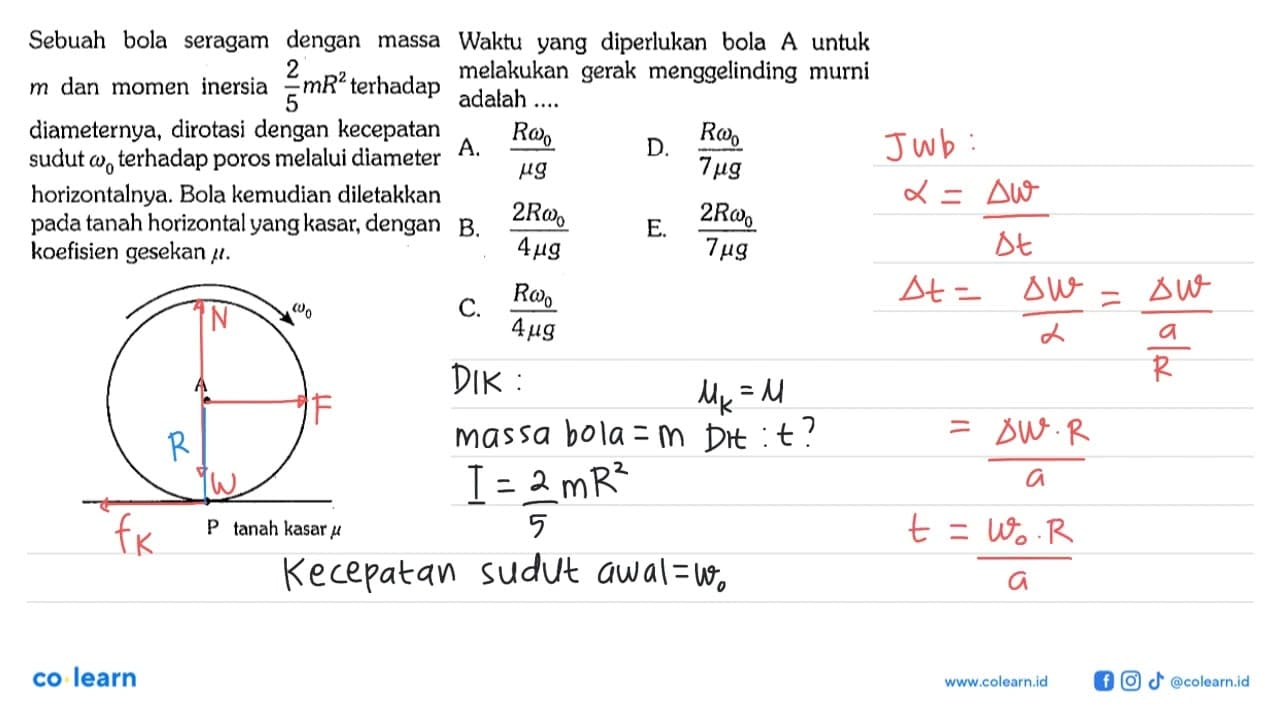 Sebuah bola seragam dengan massa
m dan momen inersia 2/5 mR² terhadap
diameternya, dirotasi dengan kecepatan
sudut ω₀ terhadap poros melalui diameter
horizontalnya. Bola kemudian diletakkan
pada tanah horizontal yang kasar, dengan
koefisien gesekan μ.
ω₀
N
A
F
R
W
fK
P tanah kasar μ
Waktu yang diperlukan bola A untuk
melakukan gerak menggelinding murni
adalah ....
A. Rω₀/μg
D. Rω₀/7μg
B. 2Rω₀/4μg
E. 2Rω₀/7μg
C. Rω₀/4μg
DIK :
μK = μ
massa bola = m Dit : t?
I = 2/5 mR²
Kecepatan sudut awal = ω₀
Jwb :
α = Δω/Δt
Δt = Δω/α = Δω/(a/R)
= Δω.R/a
t = ω₀.R/a
co learn
www.colearn.id
@colearn.id